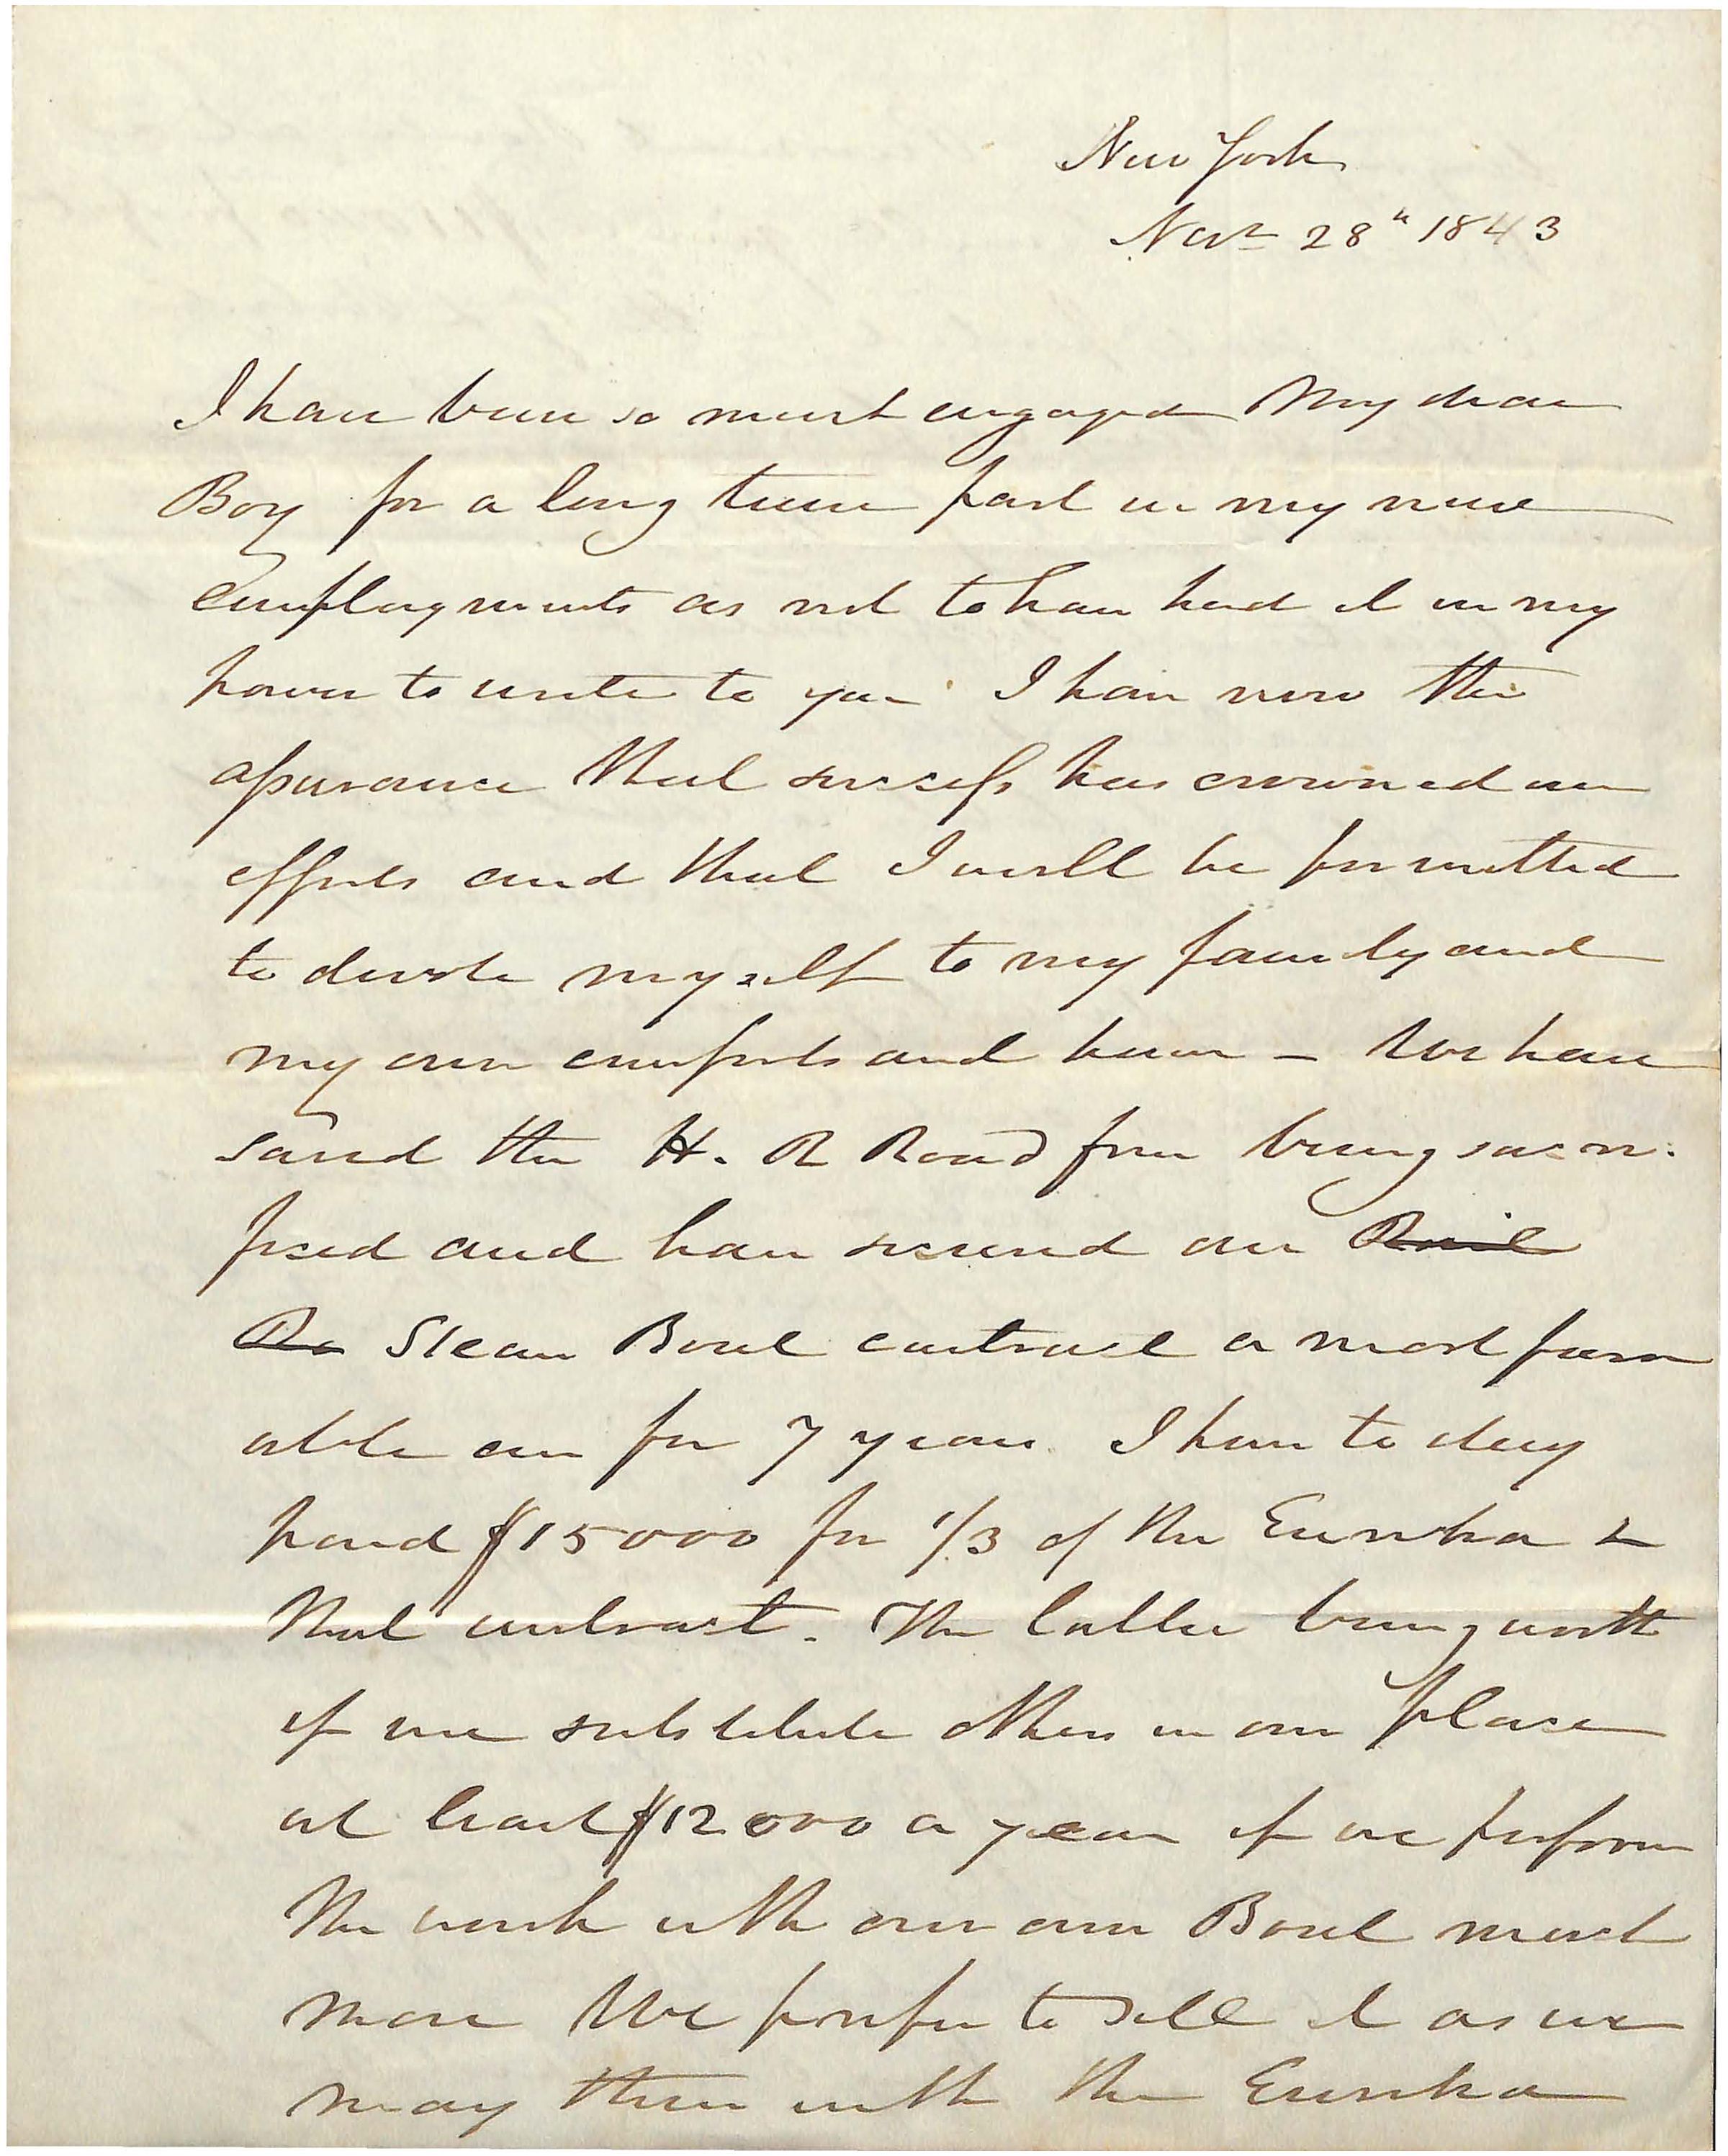 New York
Nov<sup>r</sup> 28<sup>th</sup> 1843
I have been so much engaged My dear
Boy for a long time past in my new
employments as not to have had it in my
power to write to you. I have now the
assurance that success has crowned our
efforts and that I will be permitted
to devote myself to my family and
my own comforts and home – We have
saved the H. R Road from being sacri-
ficed and have secured our ~~Rail~~
~~Ro~~ Steam Boat contract a most favor
able one for 7 years I have to day
paid $15000 for 1/3 of the Eureka &
that contract. The latter being worth
if we substitute others in our place
at least $12000 a year if we perform
the work with our own Boat much
more We prefer to sell it as we
may then with the Eureka